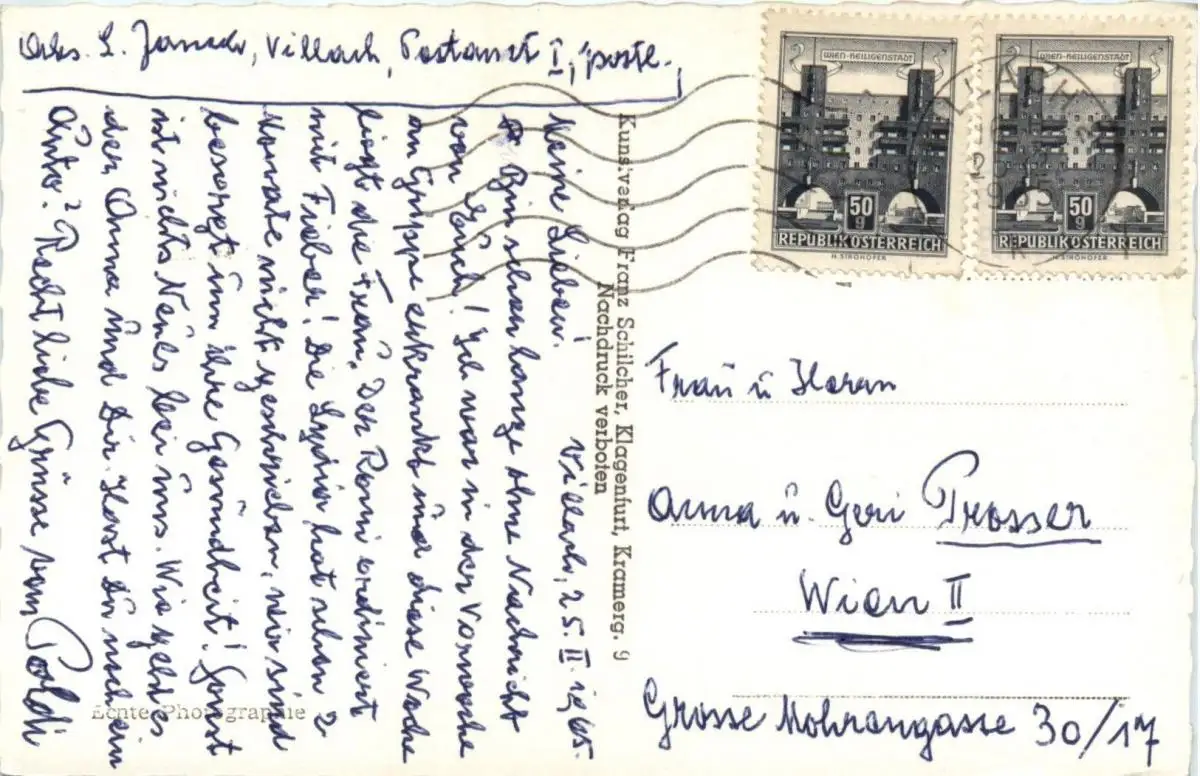 Abs. L. Janach, Villach, Postamt I, poste.
WIEN-HEILIGENSTADT
50 g
REPUBLIK ÖSTERREICH
H. STROHOFER
WIEN-HEILIGENSTADT
50 g
REPUBLIK ÖSTERREICH
H. STROHOFER
Kunstverlag Franz Schilcher, Klagenfurt, Kramerg. 9
Nachdruck verboten
Villach, 25. II. 1965.
Meine Lieben!
Bin schon lange ohne Nachricht
von Euch! Ich war in der Vorwoche
an Grippe erkrankt und diese Woche
liegt die Frau. Der Romi ordiniert
mit Fieber! Die Lydia hat schon 2
Monate nicht geschrieben, wir sind
besorgt um ihre Gesundheit! Sonst
ist nichts Neues bei uns. Wie geht es
der Anna und Dir. Hast du noch ein
Auto? Recht liebe Grüsse vom Poldi
Echte Photographie
Frau u Herrn
Anna u. Geri Prosser
Wien II
Grosse Mohrengasse 30/17